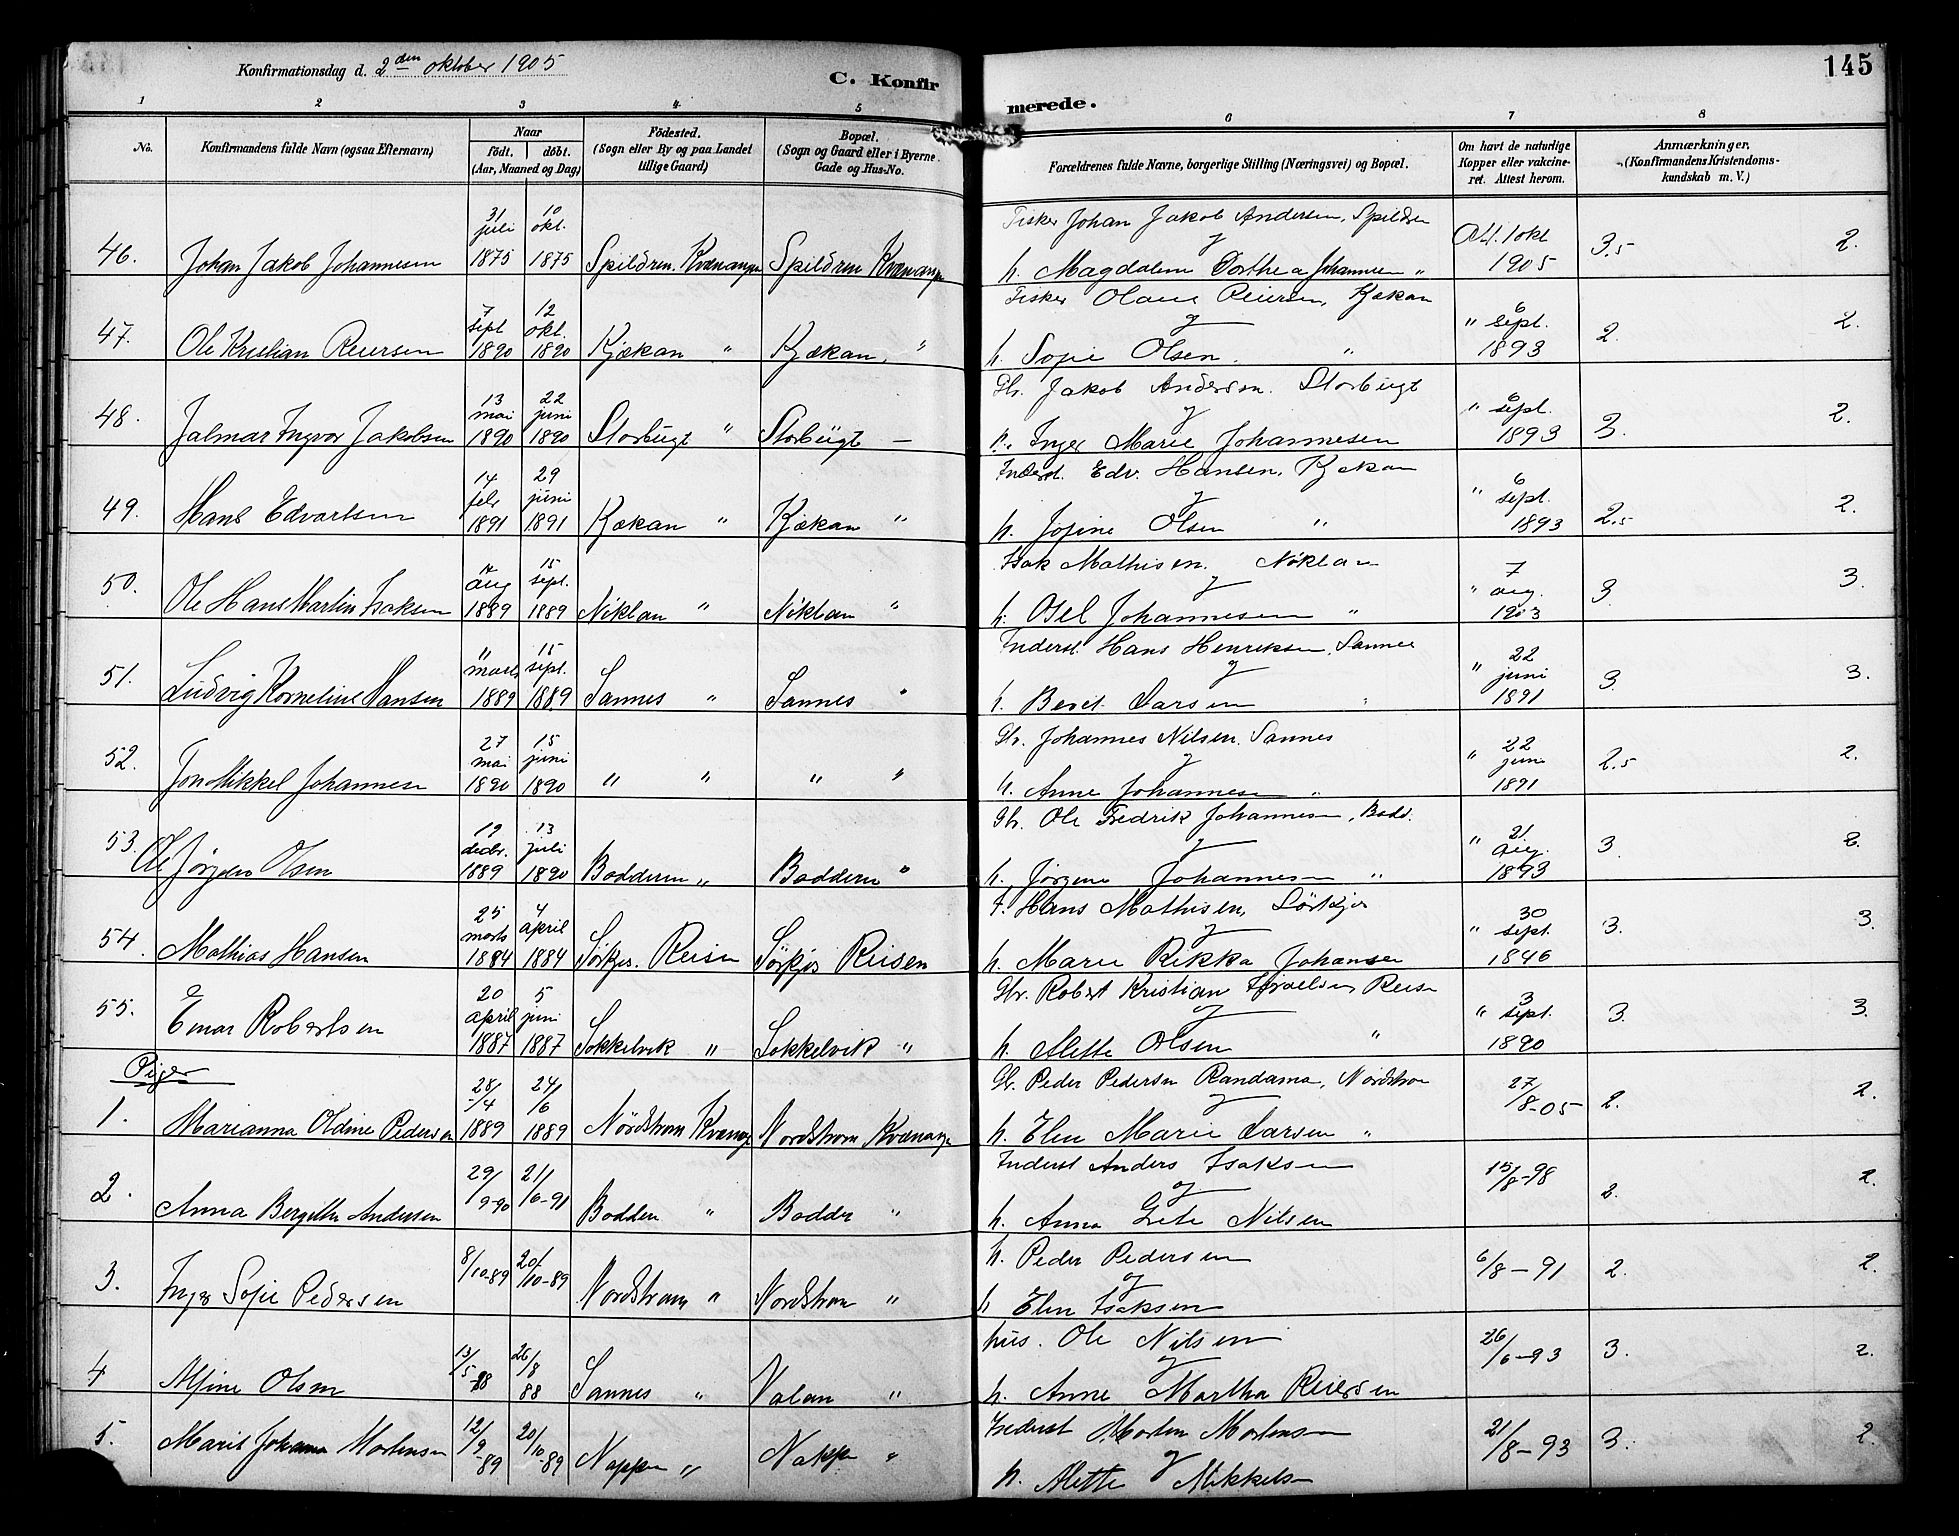 Konfirmationsdag d. 2den oktober 1905
C. Konfir
merede.
145
1 2 3 4 5 6 7 8
No.
Konfirmandens fulde Navn (ogsaa Efternavn)
Naar
født. døbt.
(Aar, Maaned og Dag)
Fødested.
(Sogn eller By og paa Landet
tillige Gaard)
Bopæl.
(Sogn og Gaard eller i Byerne
Gade og Hus-No.
Forældrenes fulde Navne, borgerlige Stilling (Næringsvei) og Bopæl.
Om havt de naturlige
Kopper eller vakcine-
ret. Attest herom.
Anmærkninger,
(Konfirmandens Kristendoms-
kundskab m. V.)
46. Johan Jakob Johannesen 31 juli 1875 10 okt. 1875 Spildren. Kvænange Spildren Kvænange Fisker Johan Jakob Andersen, Spildren
og
h. Magdalene Dorthea Johannesen " 1 okt 1905 3,5 2.
47. Ole Kristian Reiersen 7 sept 1890 12 okt. 1890 Kjækan " Kjækan, " Fisker Olaus Reiersen, Kjækan
og
h. Sofie Olsen. " " 6 sept. 1893 2. 2.
48. Jalmar Ingvor Jakobsen 13 mai 1890 22 juni 1890 Storbugt " Storbugt — Gbr. Jakob Andersen. Storbugt
og
h. Inger Marie Johannesen " 6 sept. 1893 3. 2.
49. Hans Edvartsen 14 febr 1891 29 juni 1891 Kjækan " Kjækan " Inderst. Edv. Hansen, Kjækan
og
h. Josine Olsen " " 6 sept. 1893 2.5 2.
50. Ole Hans Martin Isaksen aug 1889 15 sept. 1889 Nøklan " Nøklan " Isak Mathisen. Nøklan
og
h. Johannesen " " 7 aug. 1903 3. 3.
51. Ludvig Kornelius Hansen 11 marts 1889 15 sept. 1889 Sannes " Sannes " Inderst. Hans Henriksen, Sannes
og
h. Berit Larsen " " 22 juni 1891 3. 3.
52. Jon Mikkel Johannesen 27 mai 1890 15 juni 1890 " " " " Gbr. Johannes Nilsen. Sannes
og
h. Anne Johannesen " " 22 juni 1891 2.5 2.
53. Ole Jørgen Olsen 19 decbr. 1889 13 juli 1890 Badderen " Badderen " Gbr. Ole Fredrik Johannesen, Badd.
og
h. Jørgine Johannesen " " 21 aug. 1893 3. 2.
54. Mathias Hansen 25 marts 1884 4 april 1884 Sørkjos. Reisen Sørkjos Reisen f. Hans Mathisen, Sørkjos
og
h. Marie Rikka Johansen " 30 sept. 1846 3. 3.
55. Einar Robertsen 20 april 1887 5 juni 1887 Sokkelvik " Sokkelvik " Gbr. Robert Kristian Israelsen, Reisen
og
h. Alette Olsen " " 3 sept. 1890 3. 3.
Piger
1. Marianna Oldine Pedersen 28/-/4 1889 24/6 1889 Nordstrøm Kvænange Nordstrøm Kvænange Gbr. Peder Pedersen Randama, Nordstrøm
og
h. Elen Marie Larsen " 27/8-05 2. 2.
2. Anna Bergitte Andersen 29/9-90 21/6-91 Badderen " Badder " Inderst Anders Isaksen
og
h. Anna Grete Nilsen 15/8-98 2. 2.
3. Inger Sofie Pedersen 8/10-89 20/10-89 Nordstrøm " Nordstrøm " h. Peder Pedersen
og
h Elen Isaksen 6/8-91 2. 2.
4 Alfine Olsen 13/5-88 26/8 88 Sannes " Valan " hus. Ole Nilsen
og
h. Anne Martha Reiersen 26/6-93 3. 2.
5. Marit Johanna Mortensen 12/9-89 20/10-89 Nappen " Nappen " Inderst Morten Mortensen
og
h. Alette Mikkelsen 21/8-93 3. 2.